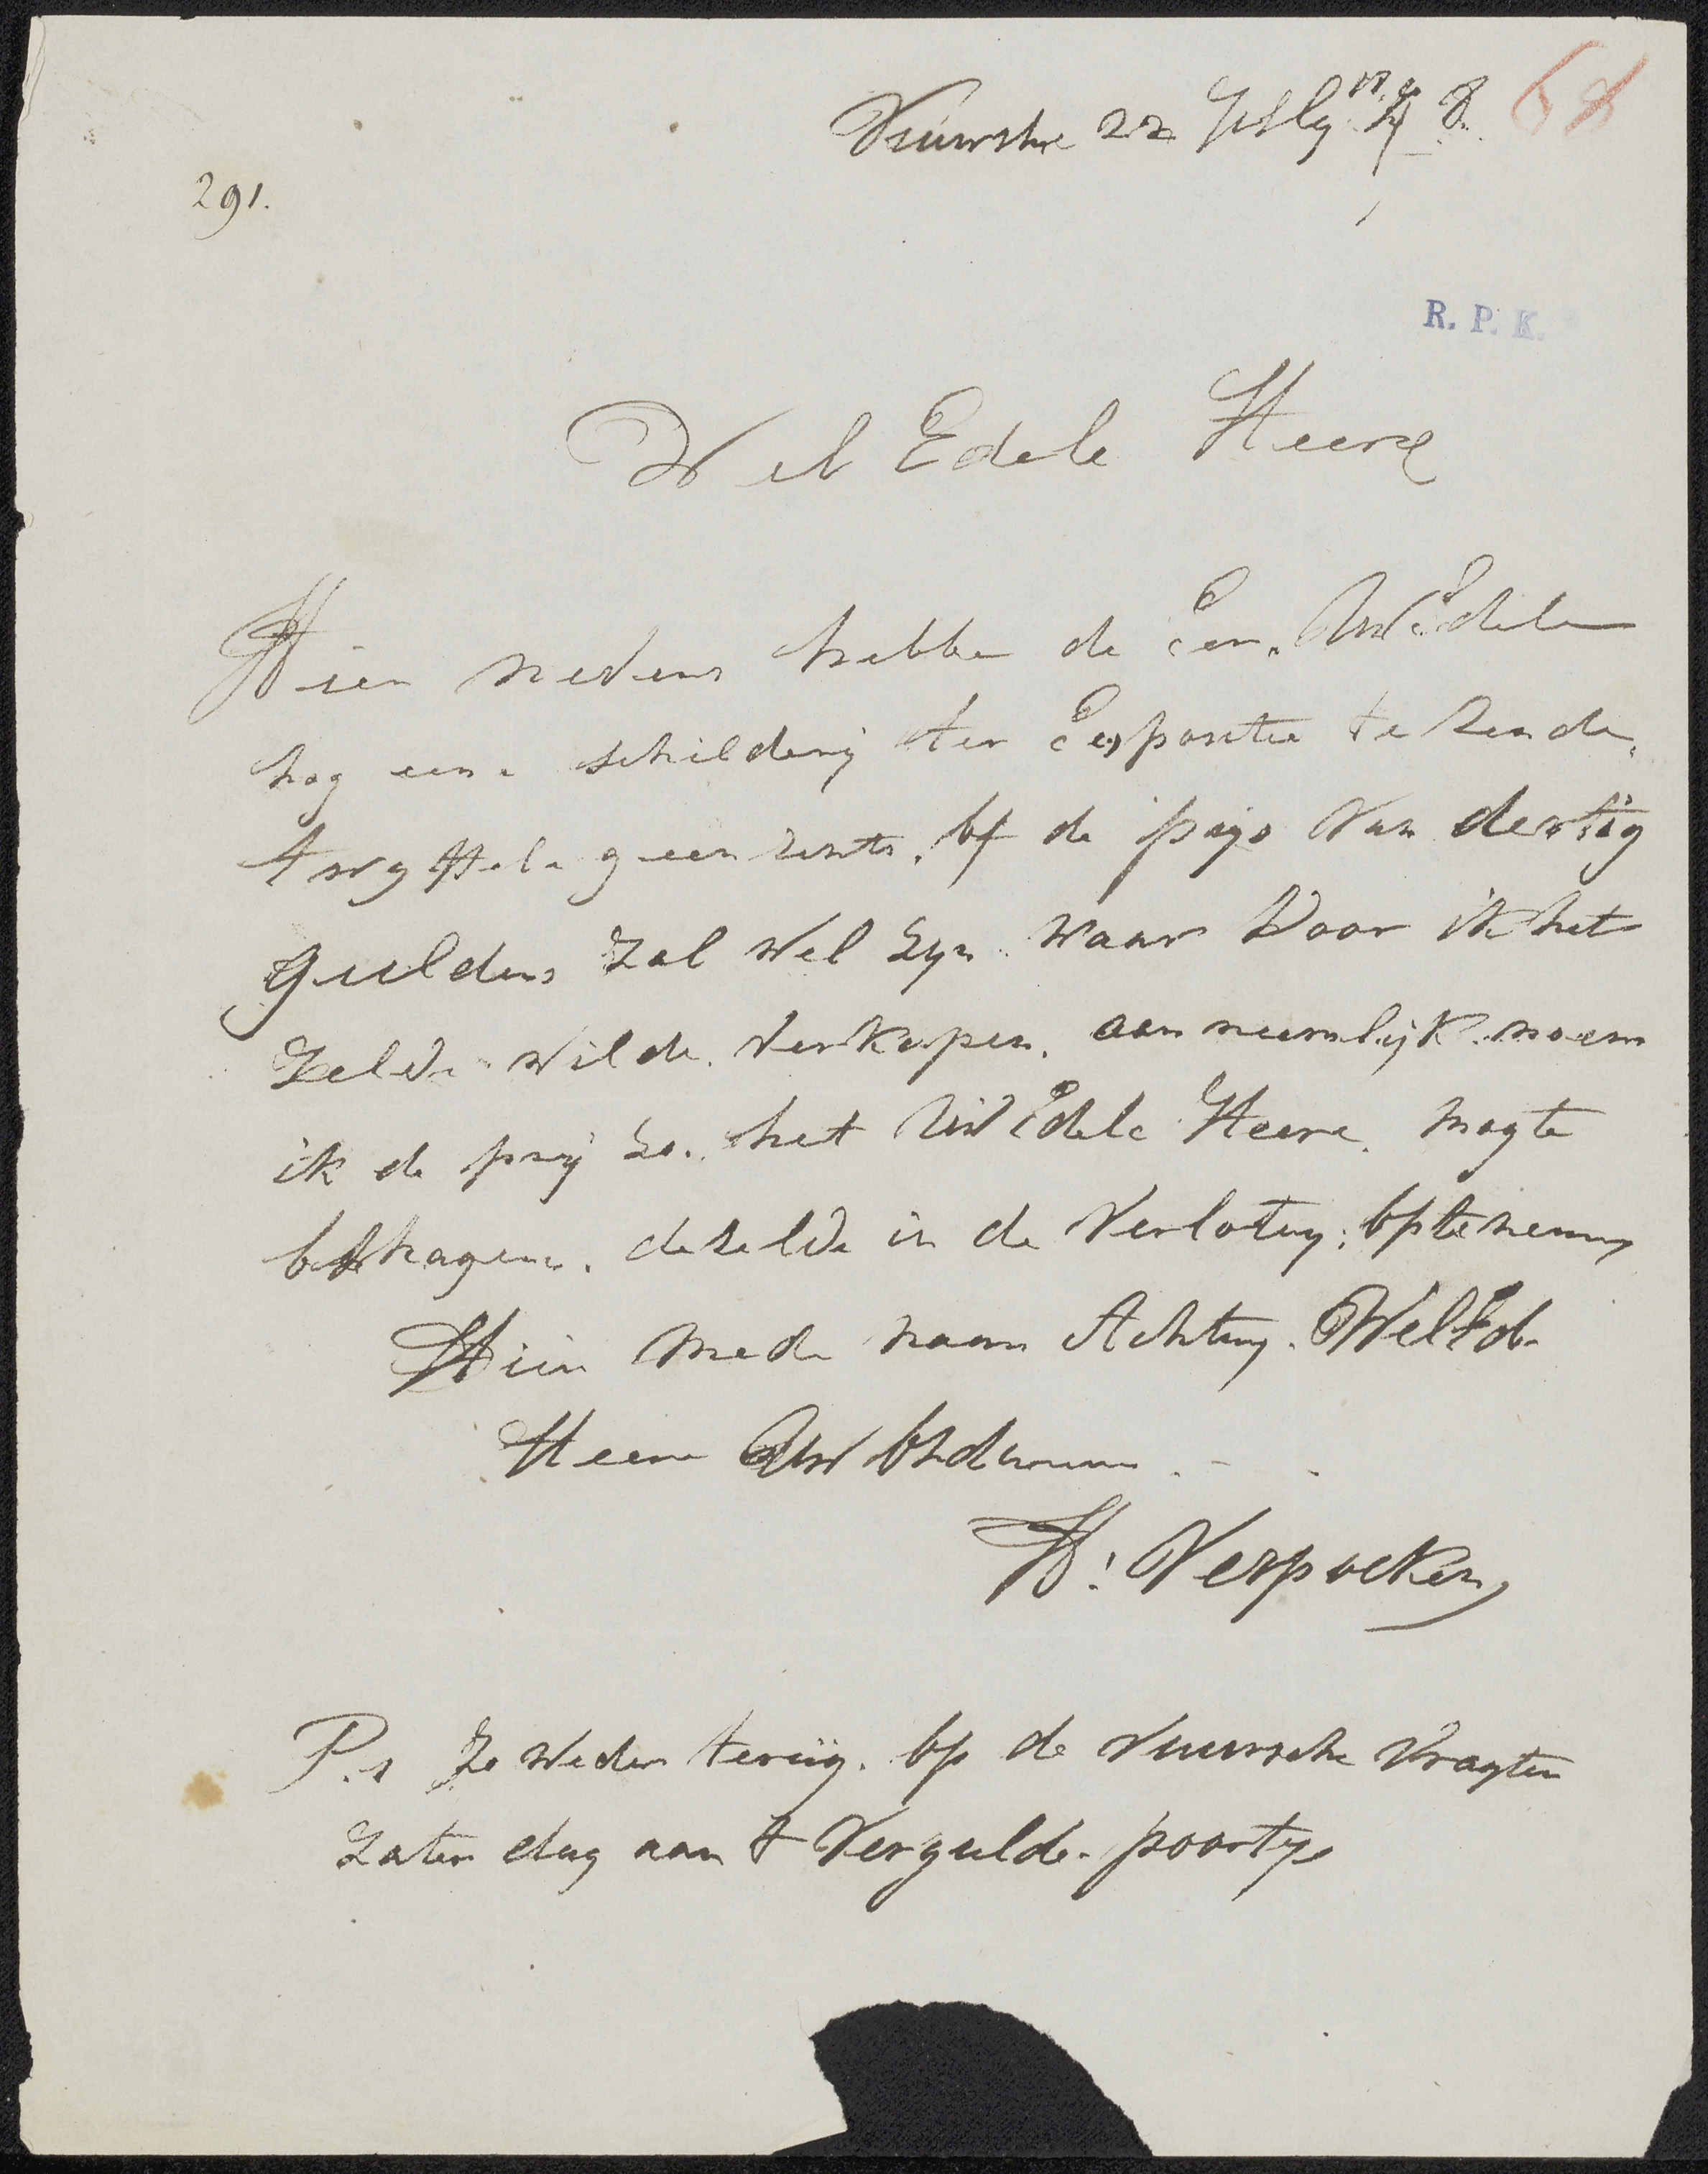 Vuursche 22 July
291.
R. P. K.
Wel Edele Heere
Hier nevens hebbe de Eer. UwEdele
nog eene schildery ter Expositie te zende.
twyffele geenzints. of de prijs van dertig
guldens zal wel zyn waar voor ik het
zelve wilde. verkopen. aanneemlijk. noem
ik de prij zo. het UwEdele Heere. mogte
behagen. dezelve in de Verloting: opteneemen
Hier mede naam Achting. WelEd.
Heere Uw
H: Verpoeken
P.s Zo weder terüg. op de Vuursche Vragten
zater dag aan t Vergulde poortye